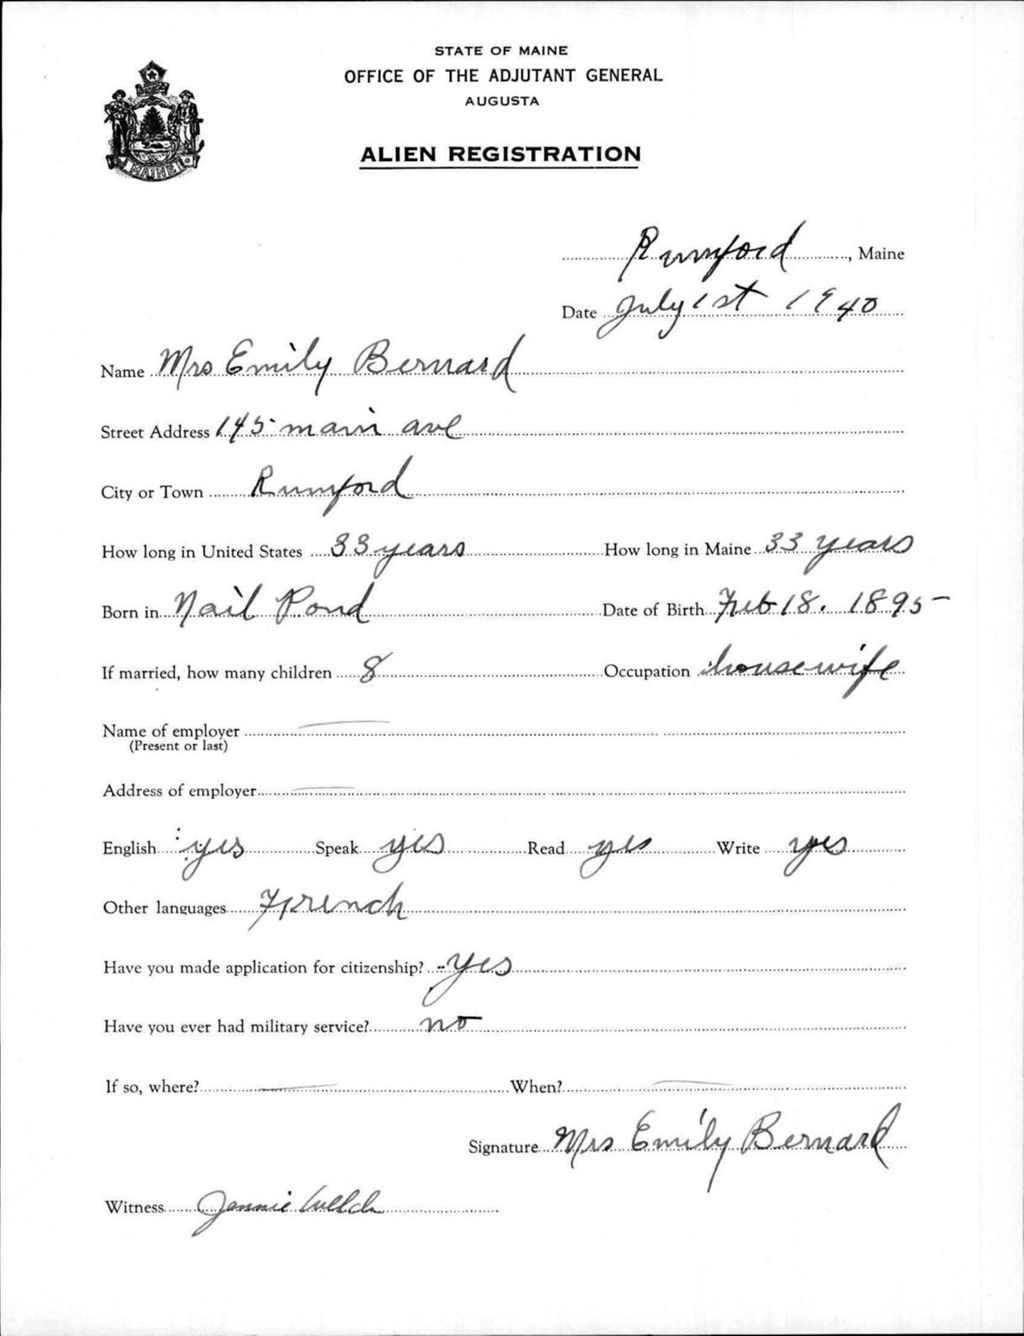 STATE OF MAINE
OFFICE OF THE ADJUTANT GENERAL
AUGUSTA
ALIEN REGISTRATION
MAINE
Rumford, Maine
Date July 1st 1940
Name Mrs Emily Bernard
Street Address 145 main ave
City or Town Rumford
How long in United States 33 years How long in Maine 33 years
Born in Nail Pond Date of Birth Feb 18. 1895
If married, how many children 8 Occupation housewife
Name of employer
(Present or last)
Address of employer
English yes Speak yes Read yes Write yes
Other languages French
Have you made application for citizenship? yes
Have you ever had military service? no
If so, where? When?
Signature Mrs Emily Bernard
Witness Jennie Welch